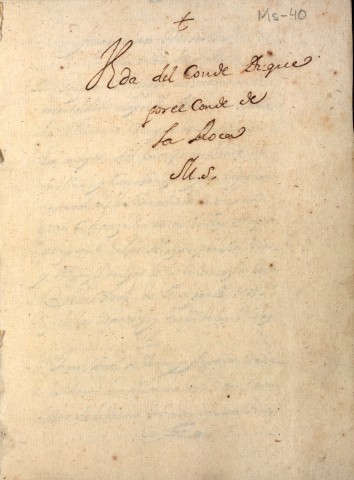 Ms-40
Vida del Conde Duque
por el Conde de
La Roca
M.S.